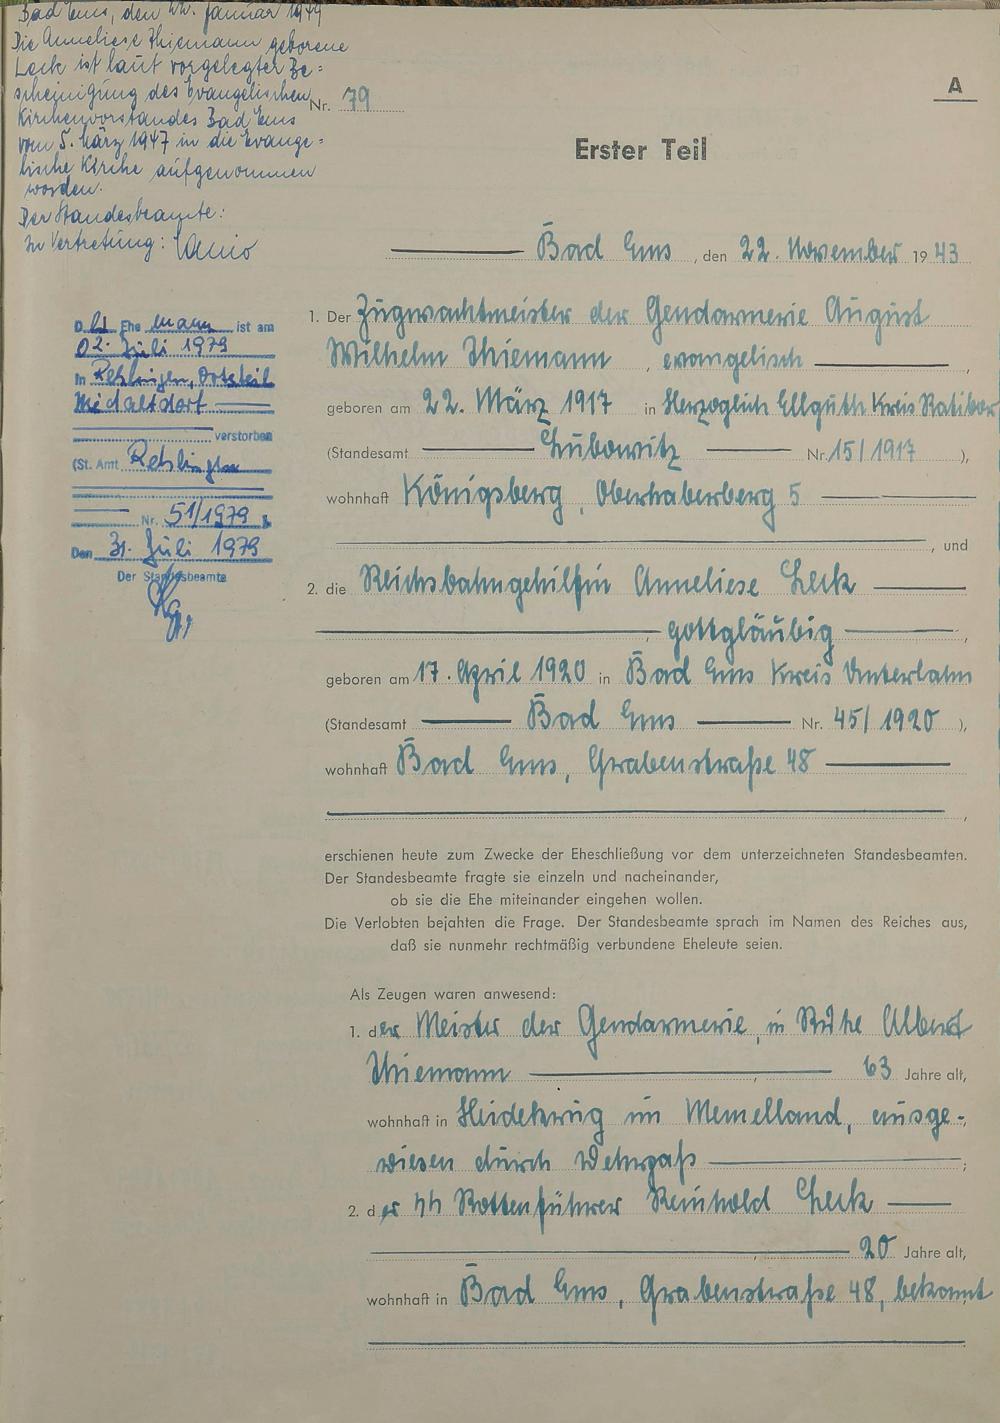 Bad Ems, den 22. Januar 1949
Die Anneliese Thiemann geborene
Leck ist laut vorgelegter Be=
scheinigung des Evangelischen
Kirchenvorstandes Bad Ems
vom 5. März 1947 in die Evange=
lische Kirche aufgenommen
worden.
Der Standesbeamte:
In Vertretung:
D er Ehe mann ist am
02. Juli 1979
in Rehlingen, Ortsteil
verstorben
(St. Amt Rehlingen
Nr. 51/1979
Den 31. Juli 1979
Der Standesbeamte
A
Nr. 79
Erster Teil
Bad Ems, den 22. November 1943
1. Der Zugwachtmeister der Gendarmerie August
Wilhelm Thiemann, evangelisch,
geboren am 22. März 1917 in Herzoglich Ellguth Kreis Ratibor
(Standesamt Lubowitz Nr. 15/1917),
wohnhaft Königsberg, Oberhaberberg 5
, und
2. die Reichsbahngehilfin Anneliese Leck
, gottgläubig,
geboren am 17. April 1920 in Bad Ems Kreis Unterlahn
(Standesamt Bad Ems Nr. 45/1920),
wohnhaft Bad Ems, Grabenstraße 48
,
erschienen heute zum Zwecke der Eheschließung vor dem unterzeichneten Standesbeamten.
Der Standesbeamte fragte sie einzeln und nacheinander,
ob sie die Ehe miteinander eingehen wollen.
Die Verlobten bejahten die Frage. Der Standesbeamte sprach im Namen des Reiches aus,
daß sie nunmehr rechtmäßig verbundene Eheleute seien.
Als Zeugen waren anwesend:
1. der Meister der Gendarmerie, in Ruhe Albert
Thiemann, 63 Jahre alt,
wohnhaft in Heidekrug im Memelland, ausge-
wiesen durch Wehrpaß;
2. der SS Rottenführer Reinhold Leck
, 20 Jahre alt,
wohnhaft in Bad Ems, Grabenstraße 48, bekannt